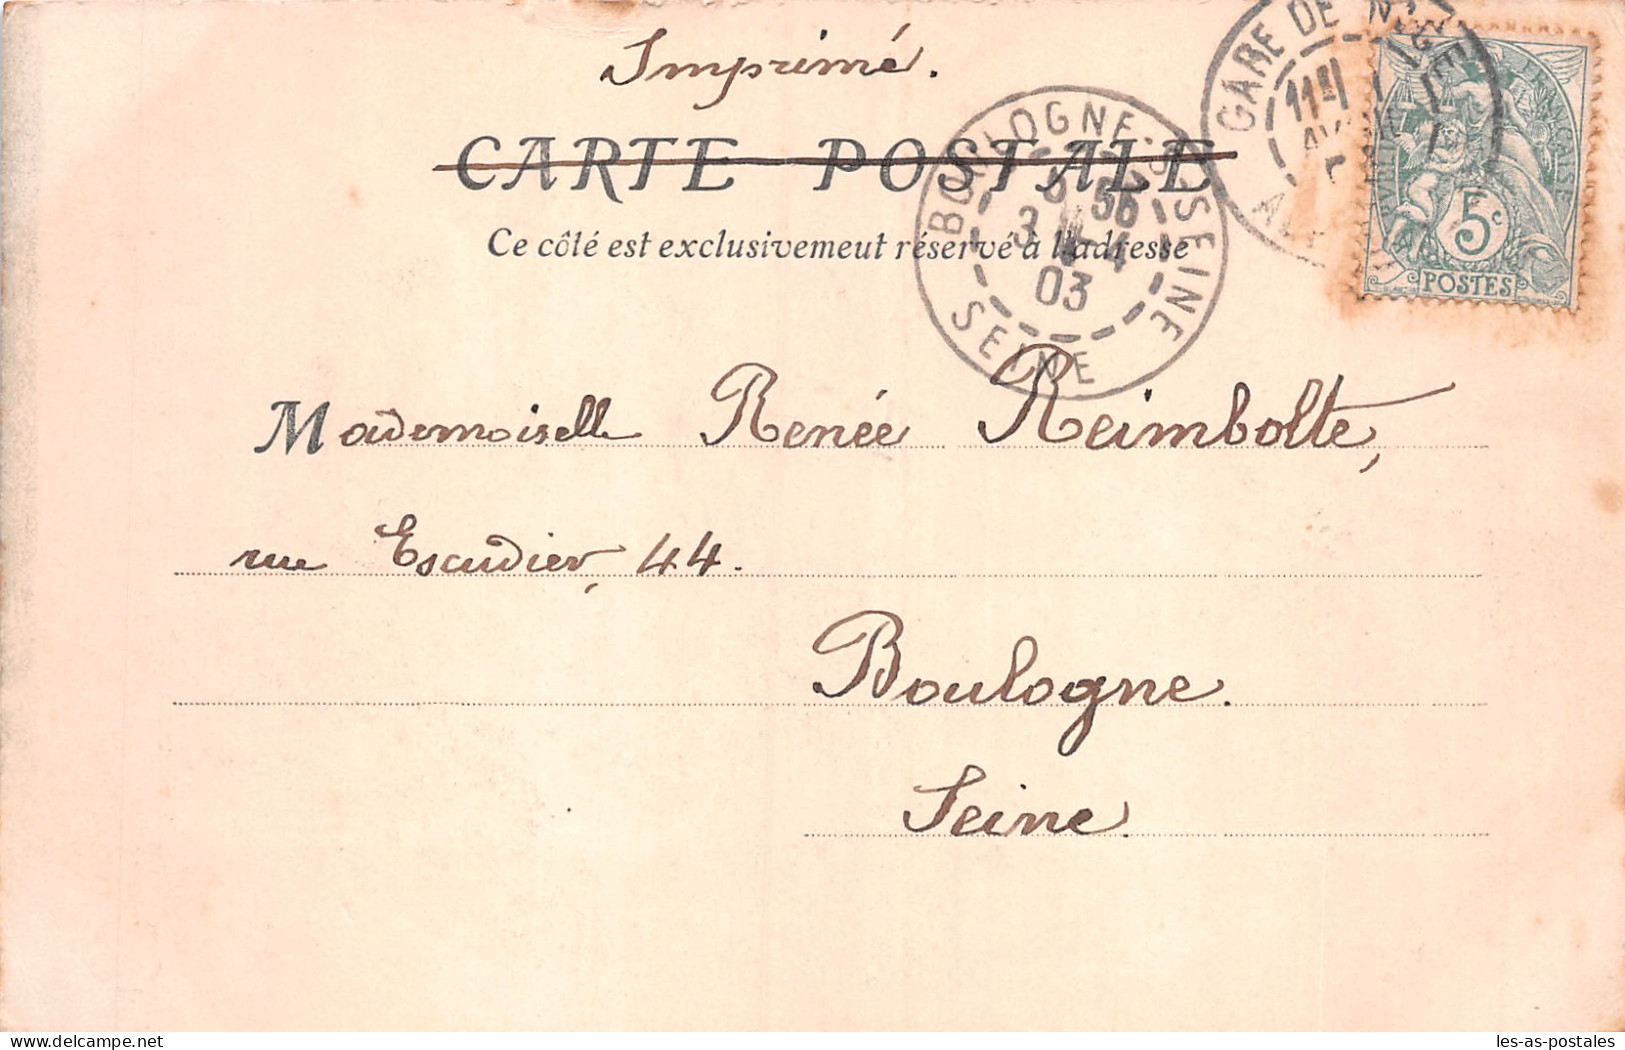 Imprimé.
CARTE POSTALE
Ce côté est exclusivement réservé à l'adresse
BOULOGNE-S-SEINE
3 -4
03
SEINE
GARE DE NICE
RÉPUBLIQUE FRANÇAISE
5c
POSTES
Mademoiselle Renée Reimbolte,
rue Escudier, 44.
Boulogne.
Seine.
les-as-postales